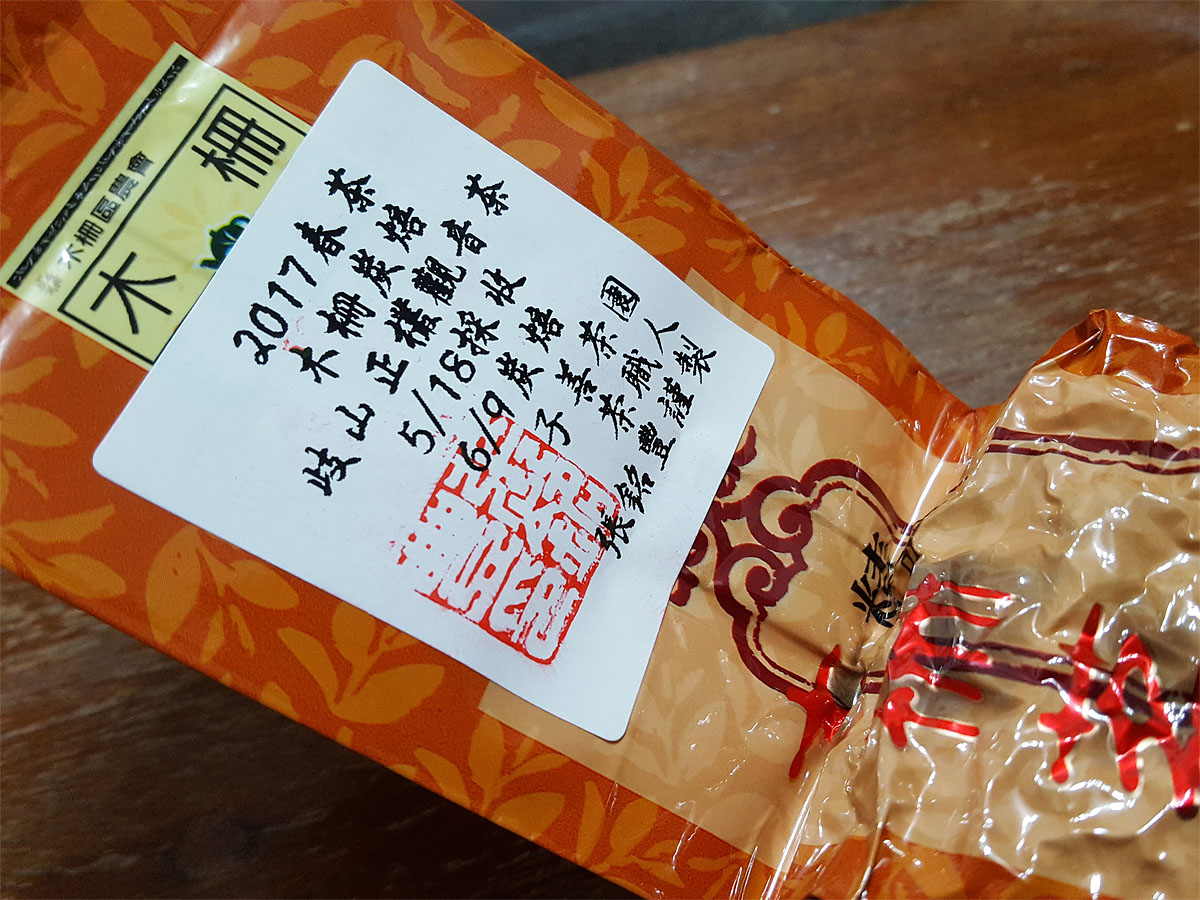 木柵區農會
木柵
2017春茶
木柵炭焙
歧山正欉觀音茶
5/18採收
6/9炭焙
子善茶園
茶職人
張銘豐謹製